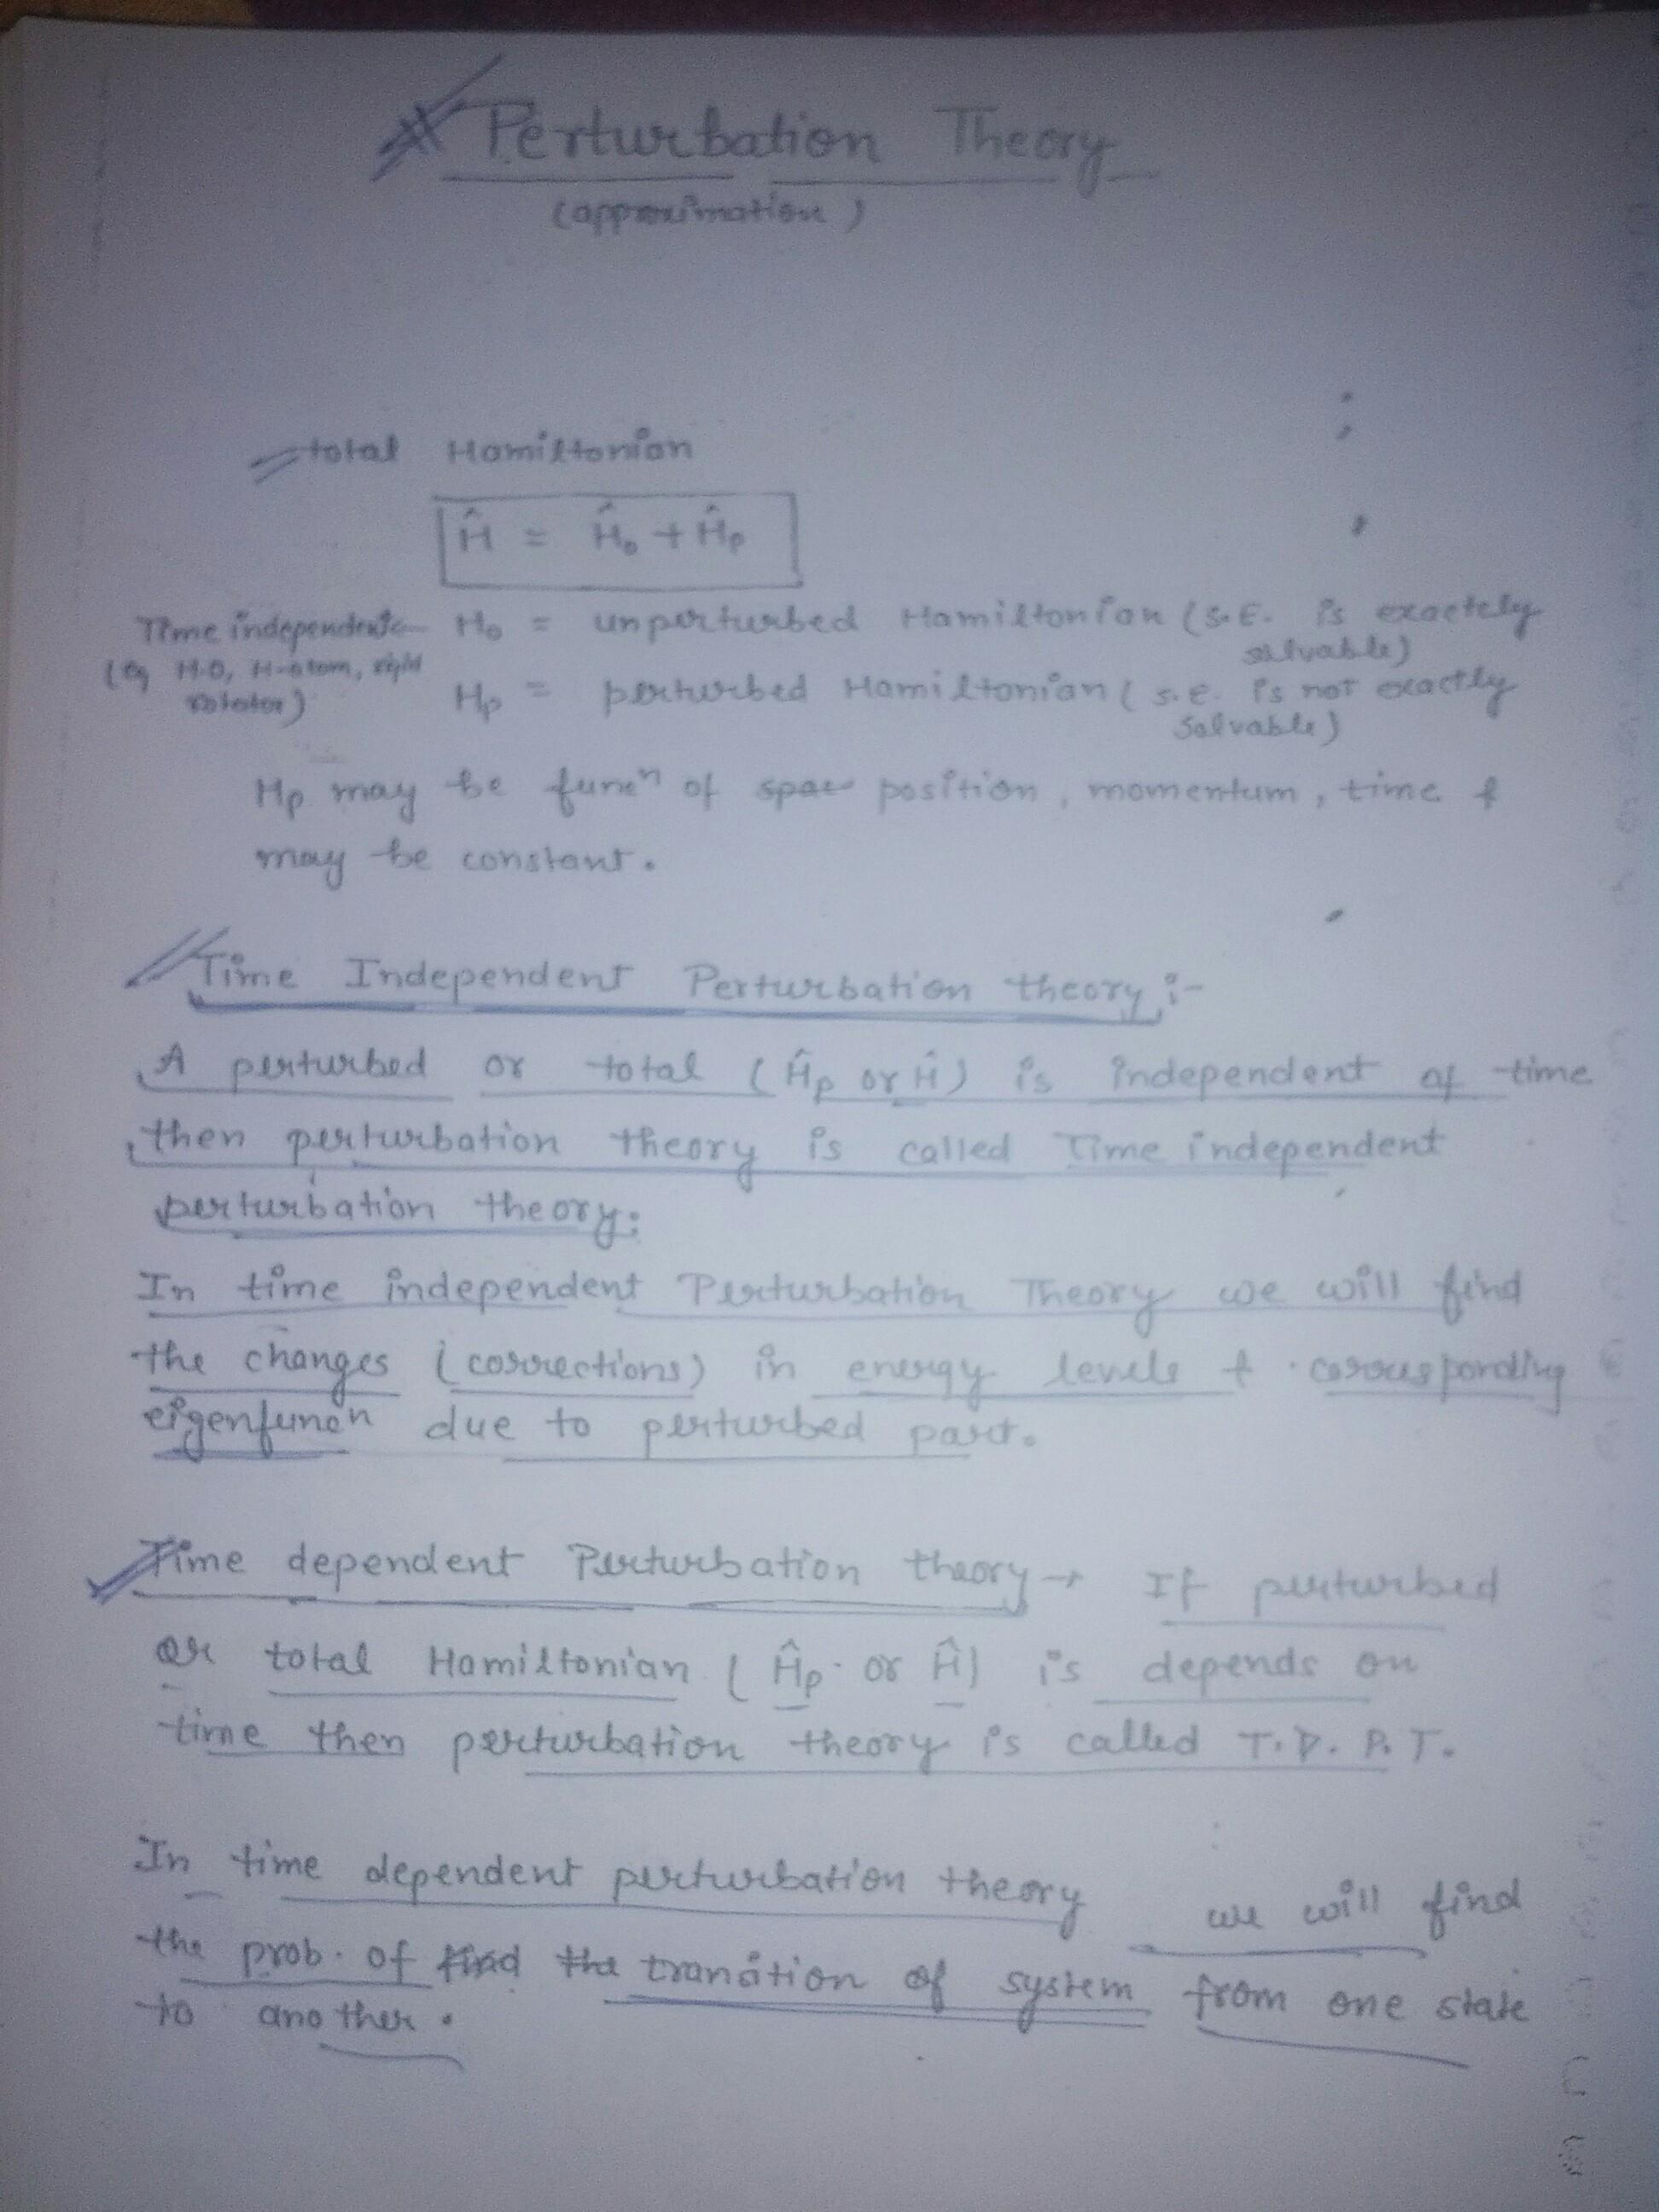 Perturbation Theory
(approximation)
total Hamiltonian
Ĥ = Ĥ₀ + Ĥp
Time independent H₀ = unperturbed Hamiltonian (S.E. is exactely
solvable)
(eg H.O, H-atom, rigid
rotator)
Hp = perturbed Hamiltonian (S.E. is not exactly
solvable)
Hp may be funcⁿ of space position, momentum, time &
may be constant.
Time Independent Perturbation theory :-
A perturbed or total (Ĥp or Ĥ) is independent of time
then perturbation theory is called Time independent
perturbation theory:
In time independent Perturbation Theory we will find
the changes (corrections) in energy levels & corrousponding
eigenfuncn due to perturbed part.
Time dependent Perturbation theory → If perturbed
or total Hamiltonian (Ĥp or Ĥ) is depends on
time then perturbation theory is called T.D.P.T.
In time dependent perturbation theory we will find
the prob. of find the transition of system from one state
to another.